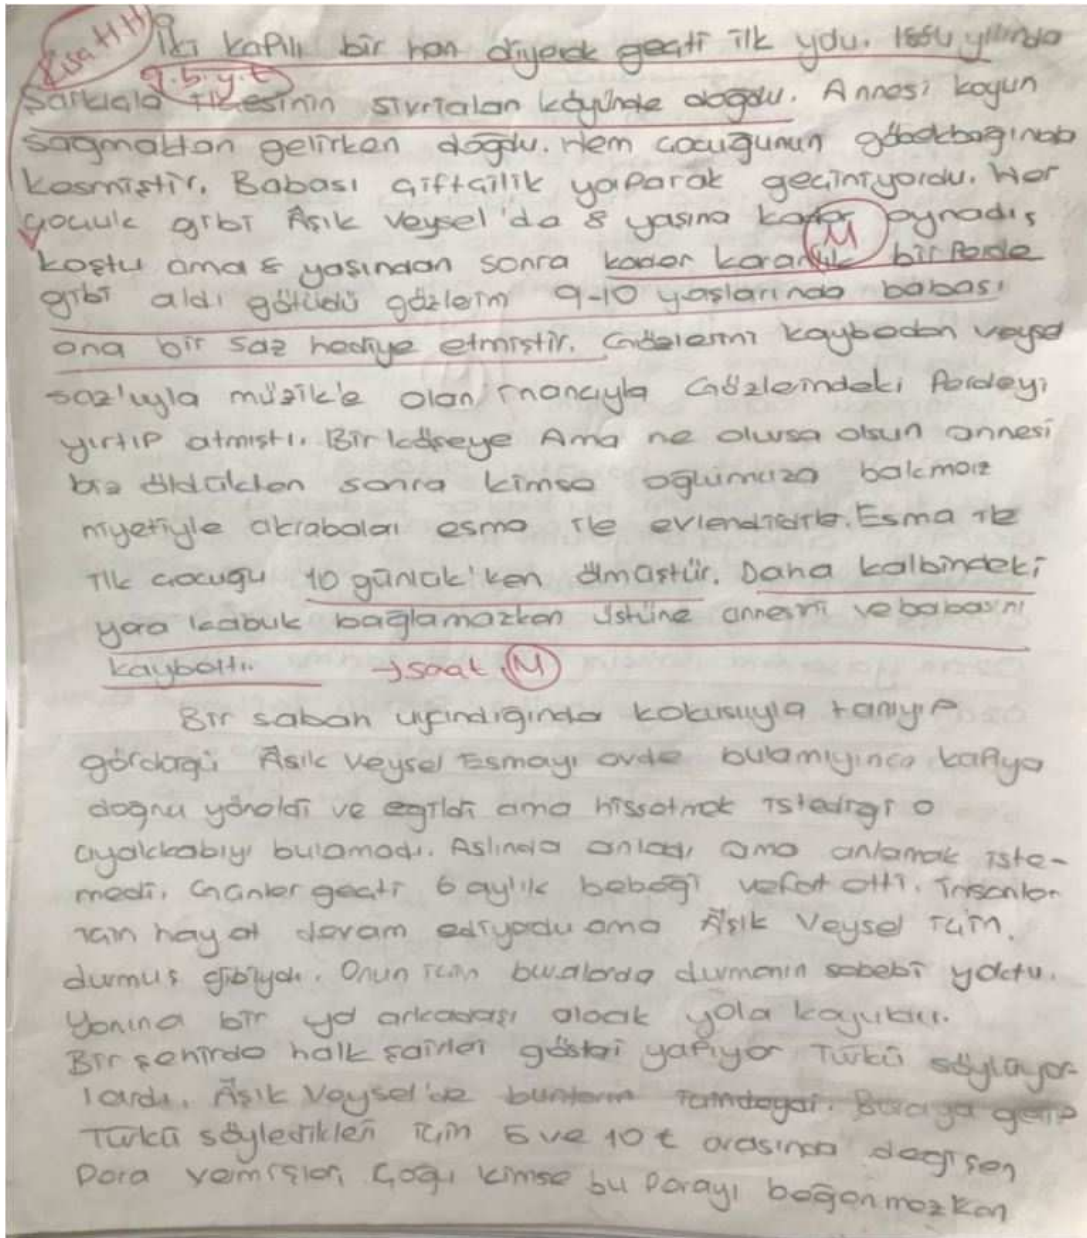 Kısa HH
İki kapılı bir han diyerek geçti ilk yolu. 1894 yılında
g.b.y.t
Şarkışla ilçesinin sivrialan köyünde doğdu. Annesi koyun
sağmaktan gelirken doğdu. Hem çocuğunun göbekbağınıda
kesmiştir. Babası çiftçilik yaparak geçiniyordu. Her
çocuk gibi Âşık Veysel'de 8 yaşına kadar oynadı,
M
koştu ama 8 yaşından sonra kader karanlık bir Perde
gibi aldı götüdü gözlerini 9-10 yaşlarında babası
ona bir saz hediye etmiştir. Gözlerini kaybeden veysel
saz'ıyla müzik'e olan inancıyla Gözlerindeki Perdeyi
yırtıp atmıştı. Bir köşeye Ama ne olursa olsun annesi
biz öldükten sonra kimse oğlumuza bakmaz
niyetiyle akrabaları esma ile Esma ile
ilk çocuğu 10 günlük'ken ölmüştür. Daha kalbindeki
yara kabuk bağlamazken üstüne annesini ve babasını
kaybetti. → saat M
Bir sabah uyandığında kokusuyla tanıyıp
gördüğü Âşık Veysel Esmayı evde bulamıyınca kapıya
doğru yöneldi ve eğildi ama hissetmek istediği o
ayakkabıyı bulamadı. Aslında anladı ama anlamak iste-
medi. Günler geçti 6 aylık bebeği vefat etti. İnsanlar
için hayat devam ediyordu ama Âşık Veysel için.
durmuş gibiydi. Onun için buralarda durmanın sebebi yoktu.
Yanına bir yol arkadaşı alarak yola koyuldu.
Bir şehirde halk şairleri yapıyor Türkü söylüyor-
lardı. Âşık Veysel'de bunların içindeydi. Buraya gelip
Türkü söyledikleri için 5 ve 10 ₺ arasında değişen
Para vermişler. Çoğu kimse bu Parayı beğenmezken